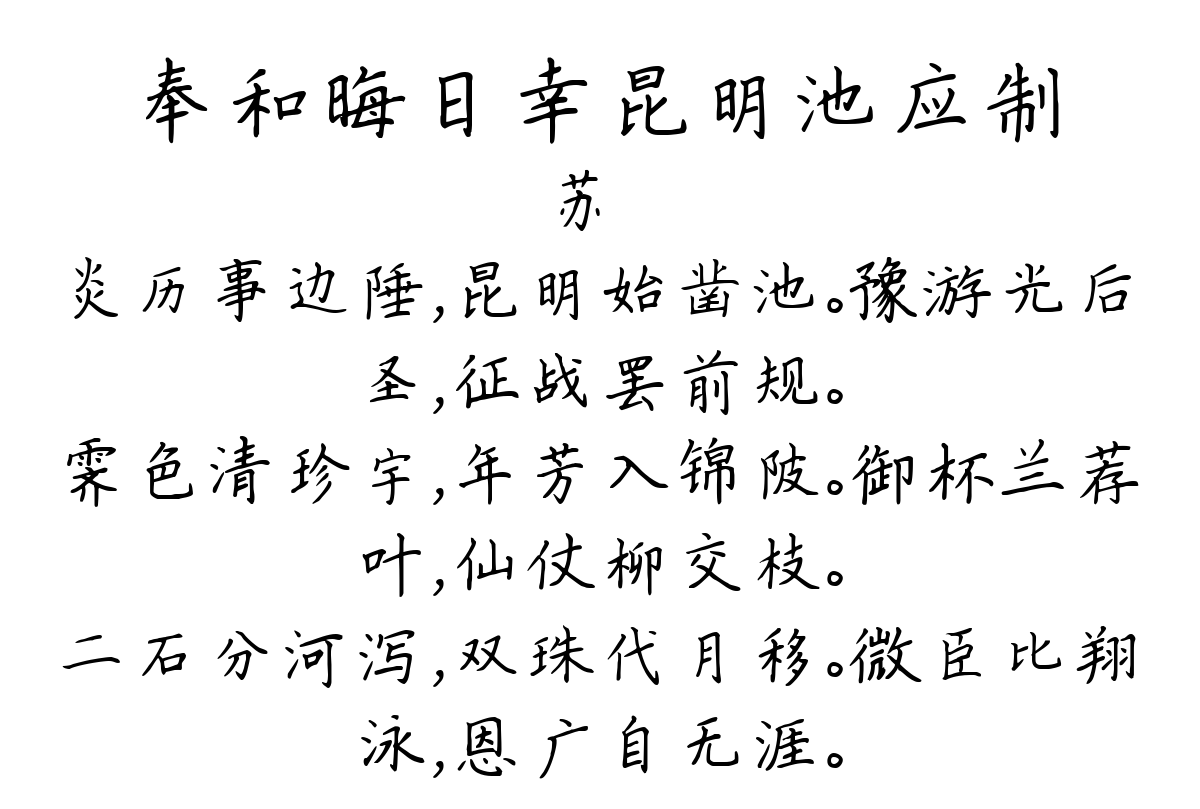 奉和晦日幸昆明池应制
苏
炎历事边陲,昆明始凿池。豫游光后
圣,征战罢前规。
霁色清珍宇,年芳入锦陂。御杯兰荐
叶,仙仗柳交枝。
二石分河泻,双珠代月移。微臣比翔
泳,恩广自无涯。